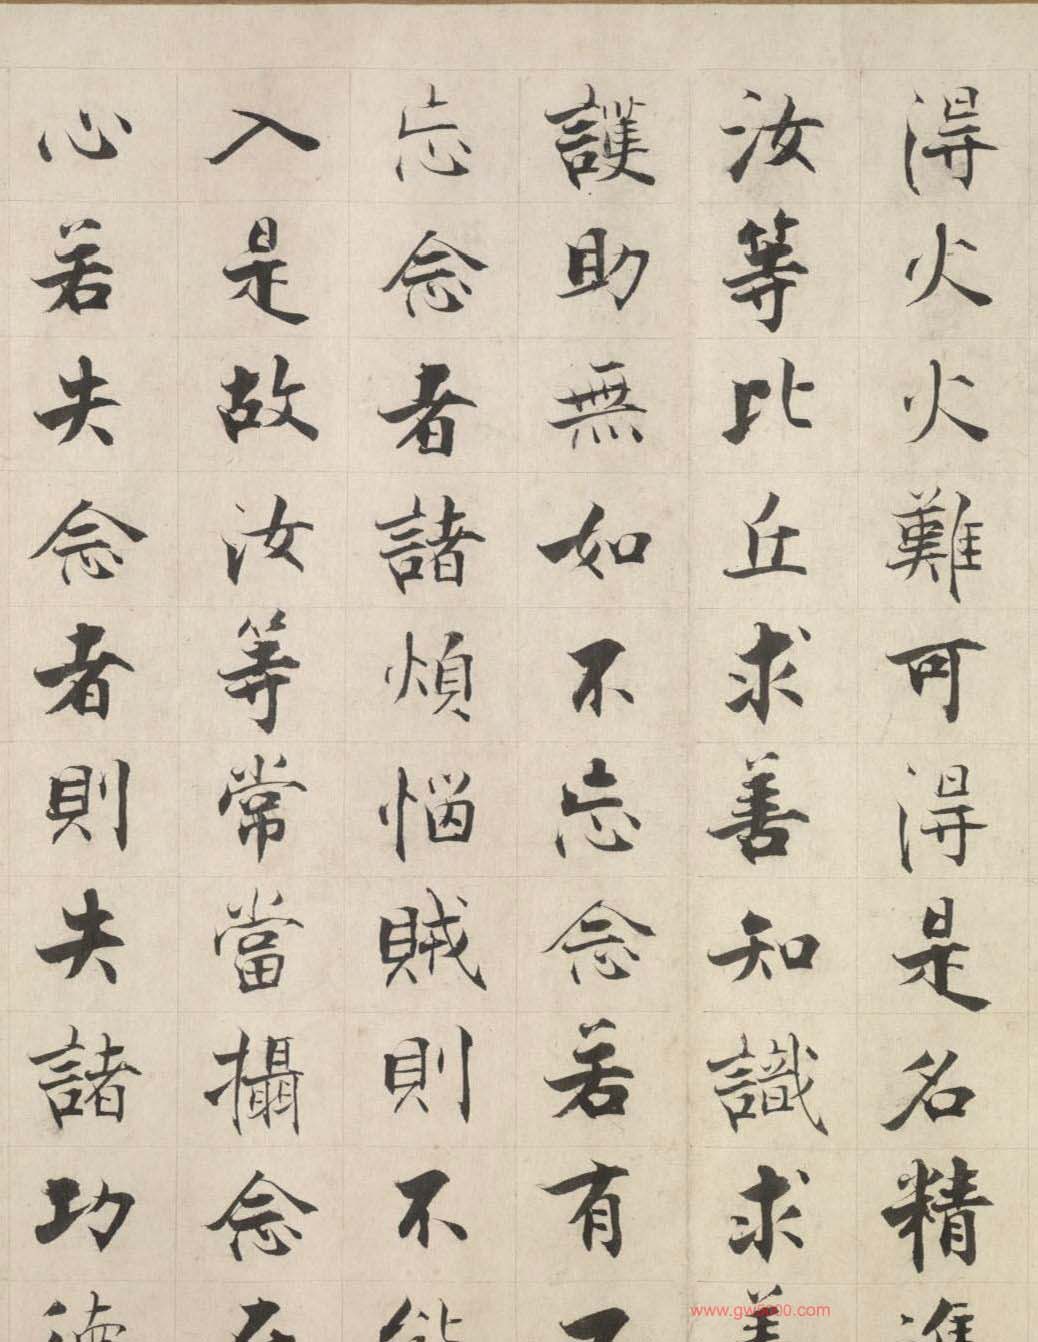 得火火難可得是名精進
汝等比丘求善知識求善
護助無如不忘念若有不
忘念者諸煩惱賊則不能
入是故汝等常當攝念在
心若失念者則失諸功德
www.gw5000.com